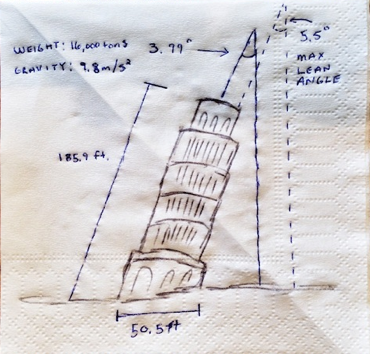 WEIGHT: 16,000 tons
GRAVITY: 9.8 m/s²
3.99°
5.5°
MAX
LEAN
ANGLE
185.9 ft.
50.5 ft